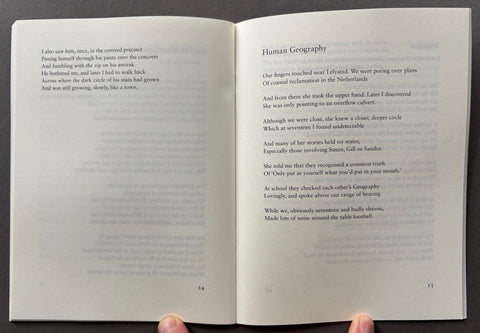 I also saw him, once, in the covered precinct
Pissing himself through his pants onto the concrete
And fumbling with the zip on his anorak.
He bothered me, and later I had to walk back
Across where the dark circle of his stain had grown
And was still growing, slowly, like a town.
14
Human Geography
Our fingers touched near Lelystad. We were poring over plans
Of coastal reclamation in the Netherlands
And from there she took the upper hand. Later I discovered
She was only pointing to an overflow culvert.
Although we were close, she knew a closer, deeper circle
Which at seventeen I found undetectable
And many of her stories held no water,
Especially those involving Susan, Gill or Sandra.
She told me that they recognised a common truth
Of 'Only put in yourself what you'd put in your mouth.'
At school they checked each other's Geography
Lovingly, and spoke above our range of hearing
While we, obviously seventeen and badly shaven,
Made lots of noise around the table football.
15